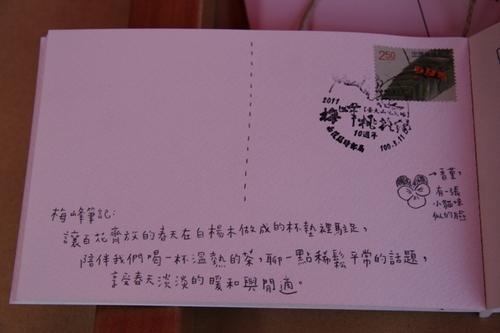 2.50
2011
梅峰
10週年
100.3.11
→香堇,
有一張
小貓咪
似的臉
梅峰筆記:
讓百花齊放的春天在白楊木做成的杯墊裡駐足,
陪伴我們喝一杯溫熱的茶,聊一點稀鬆平常的話題,
享受春天淡淡的暖和與閒適。